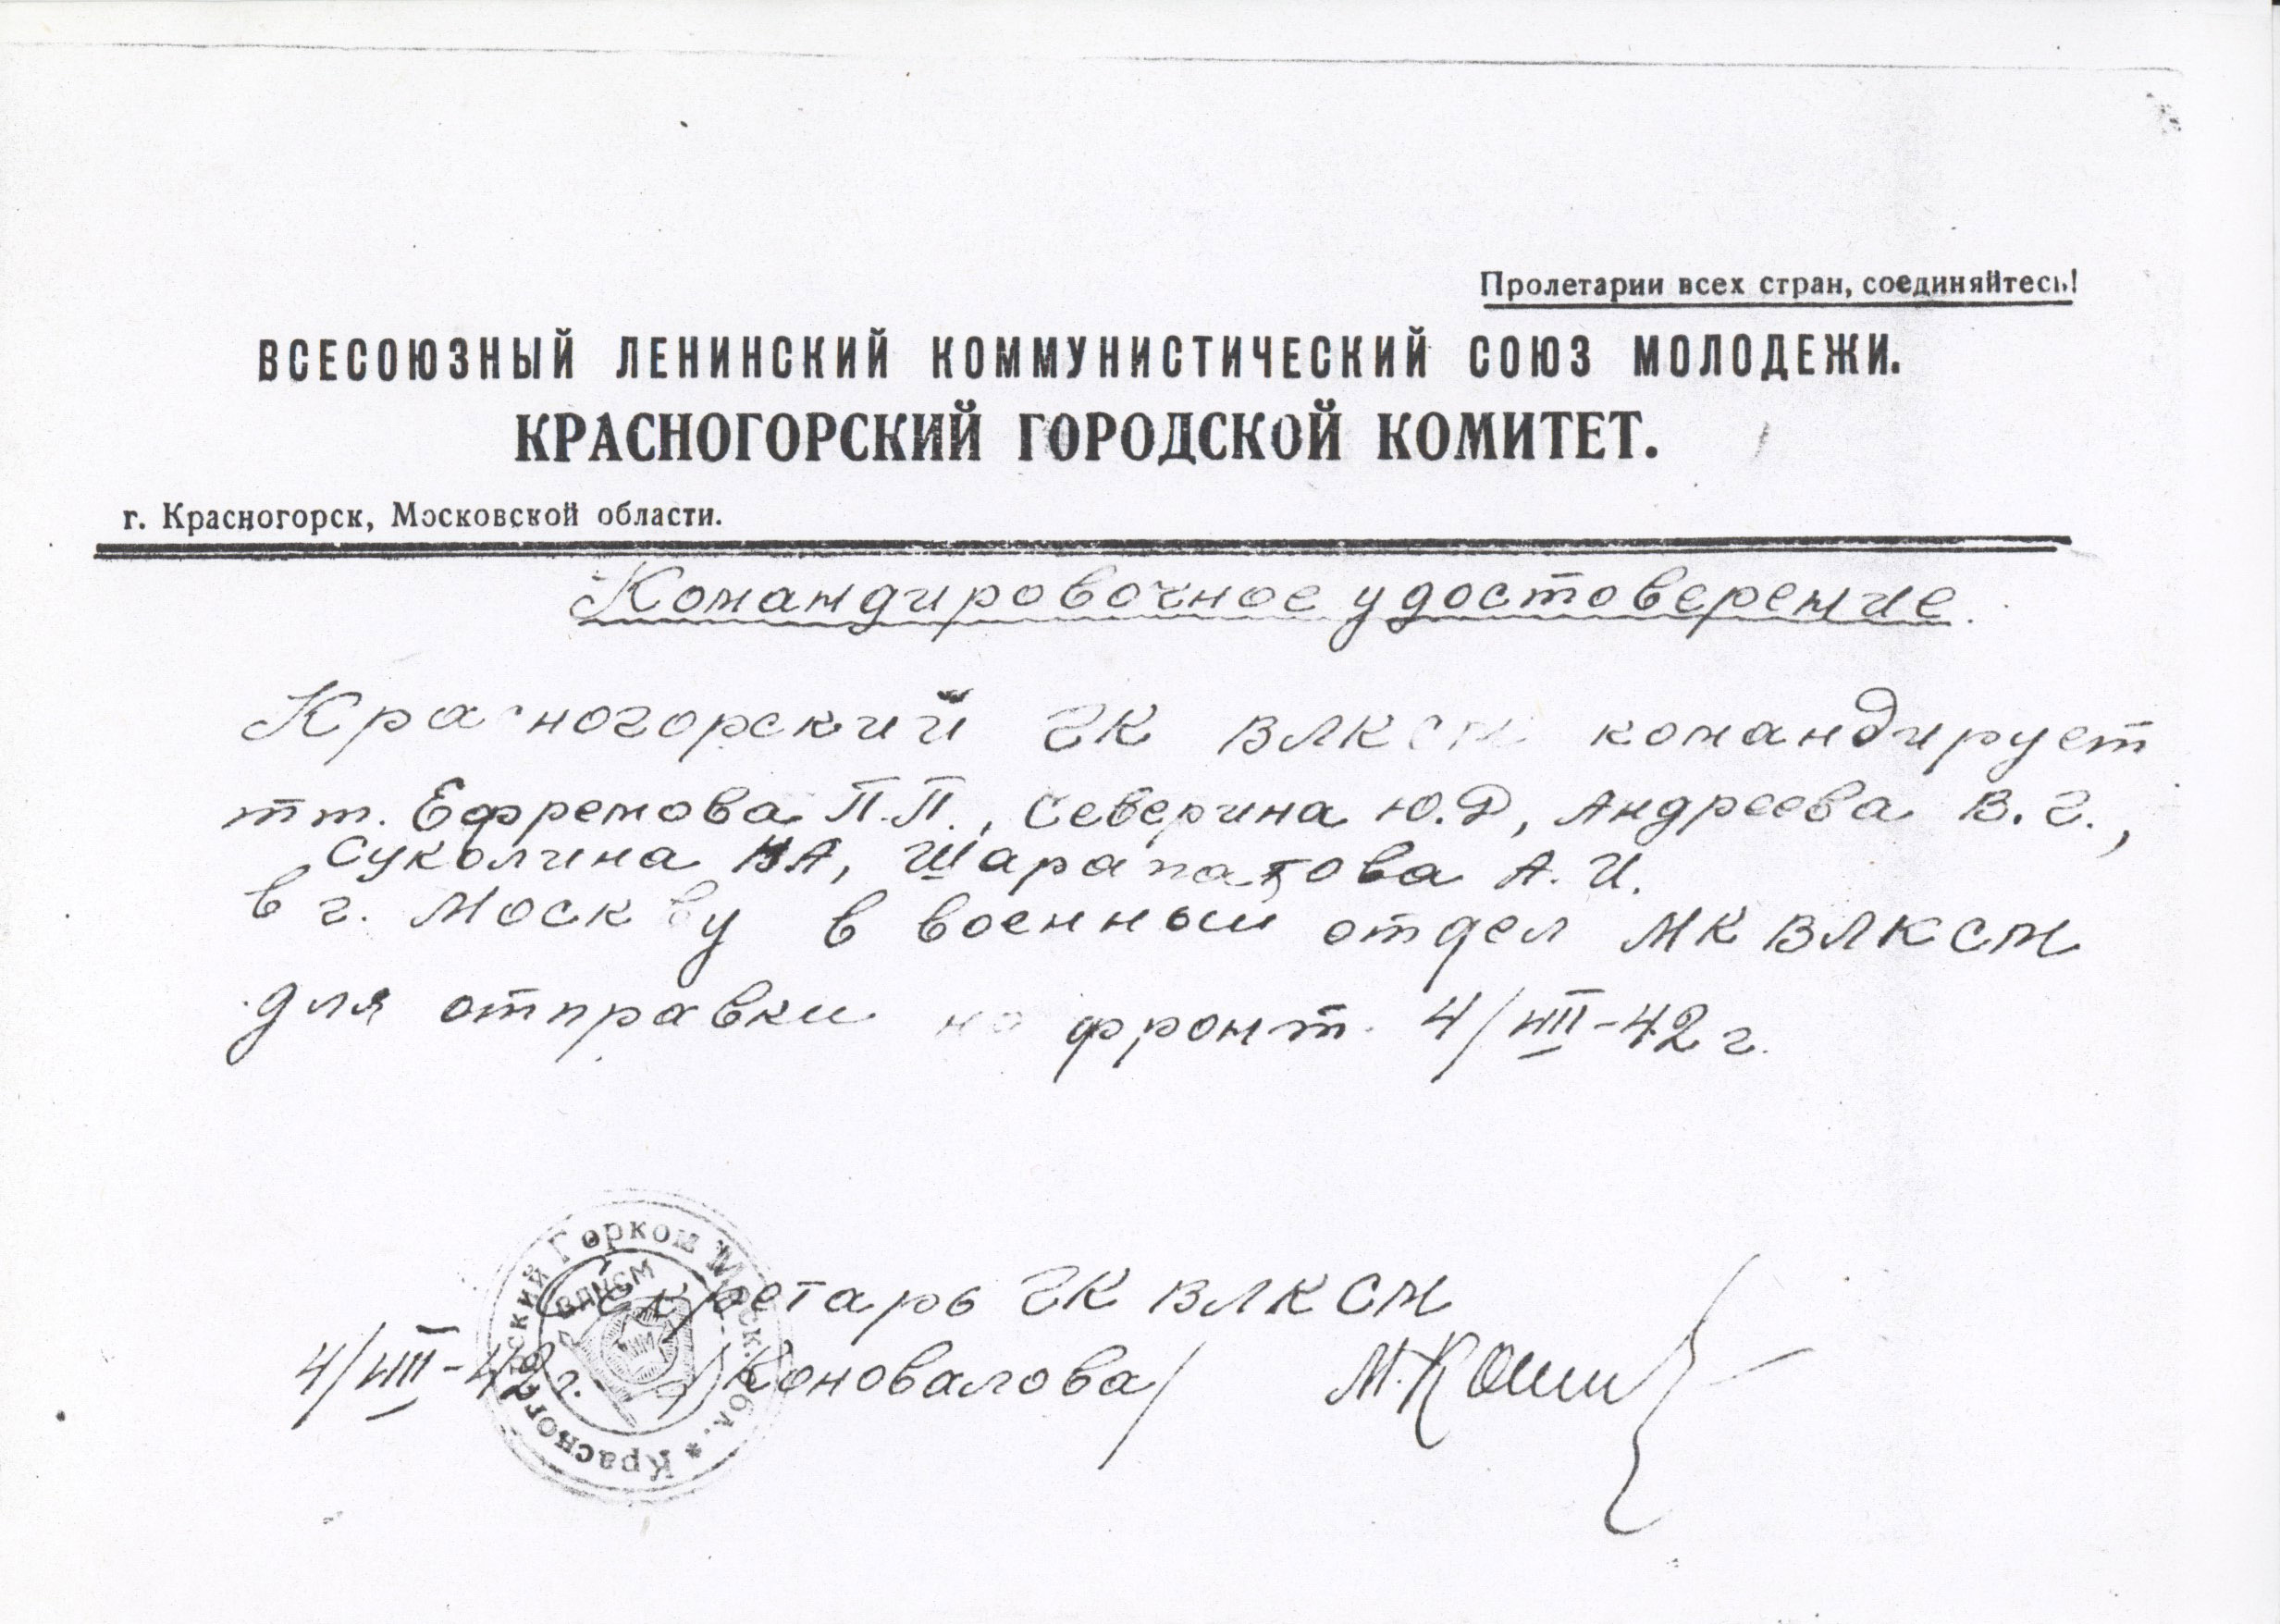 Пролетарии всех стран, соединяйтесь!
ВСЕСОЮЗНЫЙ ЛЕНИНСКИЙ КОММУНИСТИЧЕСКИЙ СОЮЗ МОЛОДЕЖИ.
КРАСНОГОРСКИЙ ГОРОДСКОЙ КОМИТЕТ.
г. Красногорск, Московской области.
Командировочное удостоверение.
Красногорский ГК ВЛКСМ командирует
тт. Ефремова П.П., Северина Ю.Д, Андреева В.Г.,
Суколина НА, Шарапатова А.И.
в г. Москву в военный отдел МК ВЛКСМ
для отправки на фронт. 4/VIII-42 г.
Красногорский Горком Моск. обл. *
ВЛКСМ
Секретарь ГК ВЛКСМ
4/VIII-42 г. /Коновалова/